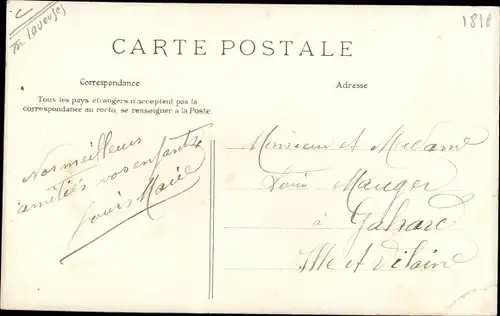 1818
CARTE POSTALE
Correspondance
Adresse
Tous les pays étrangers n'acceptent pas la
correspondance au recto, se renseigner à la Poste.
Nos meilleurs
amitiés vos enfants
Louis Marie
Monsieur et Madame
Louis Mauger
à Gahard
Ille et Vilaine